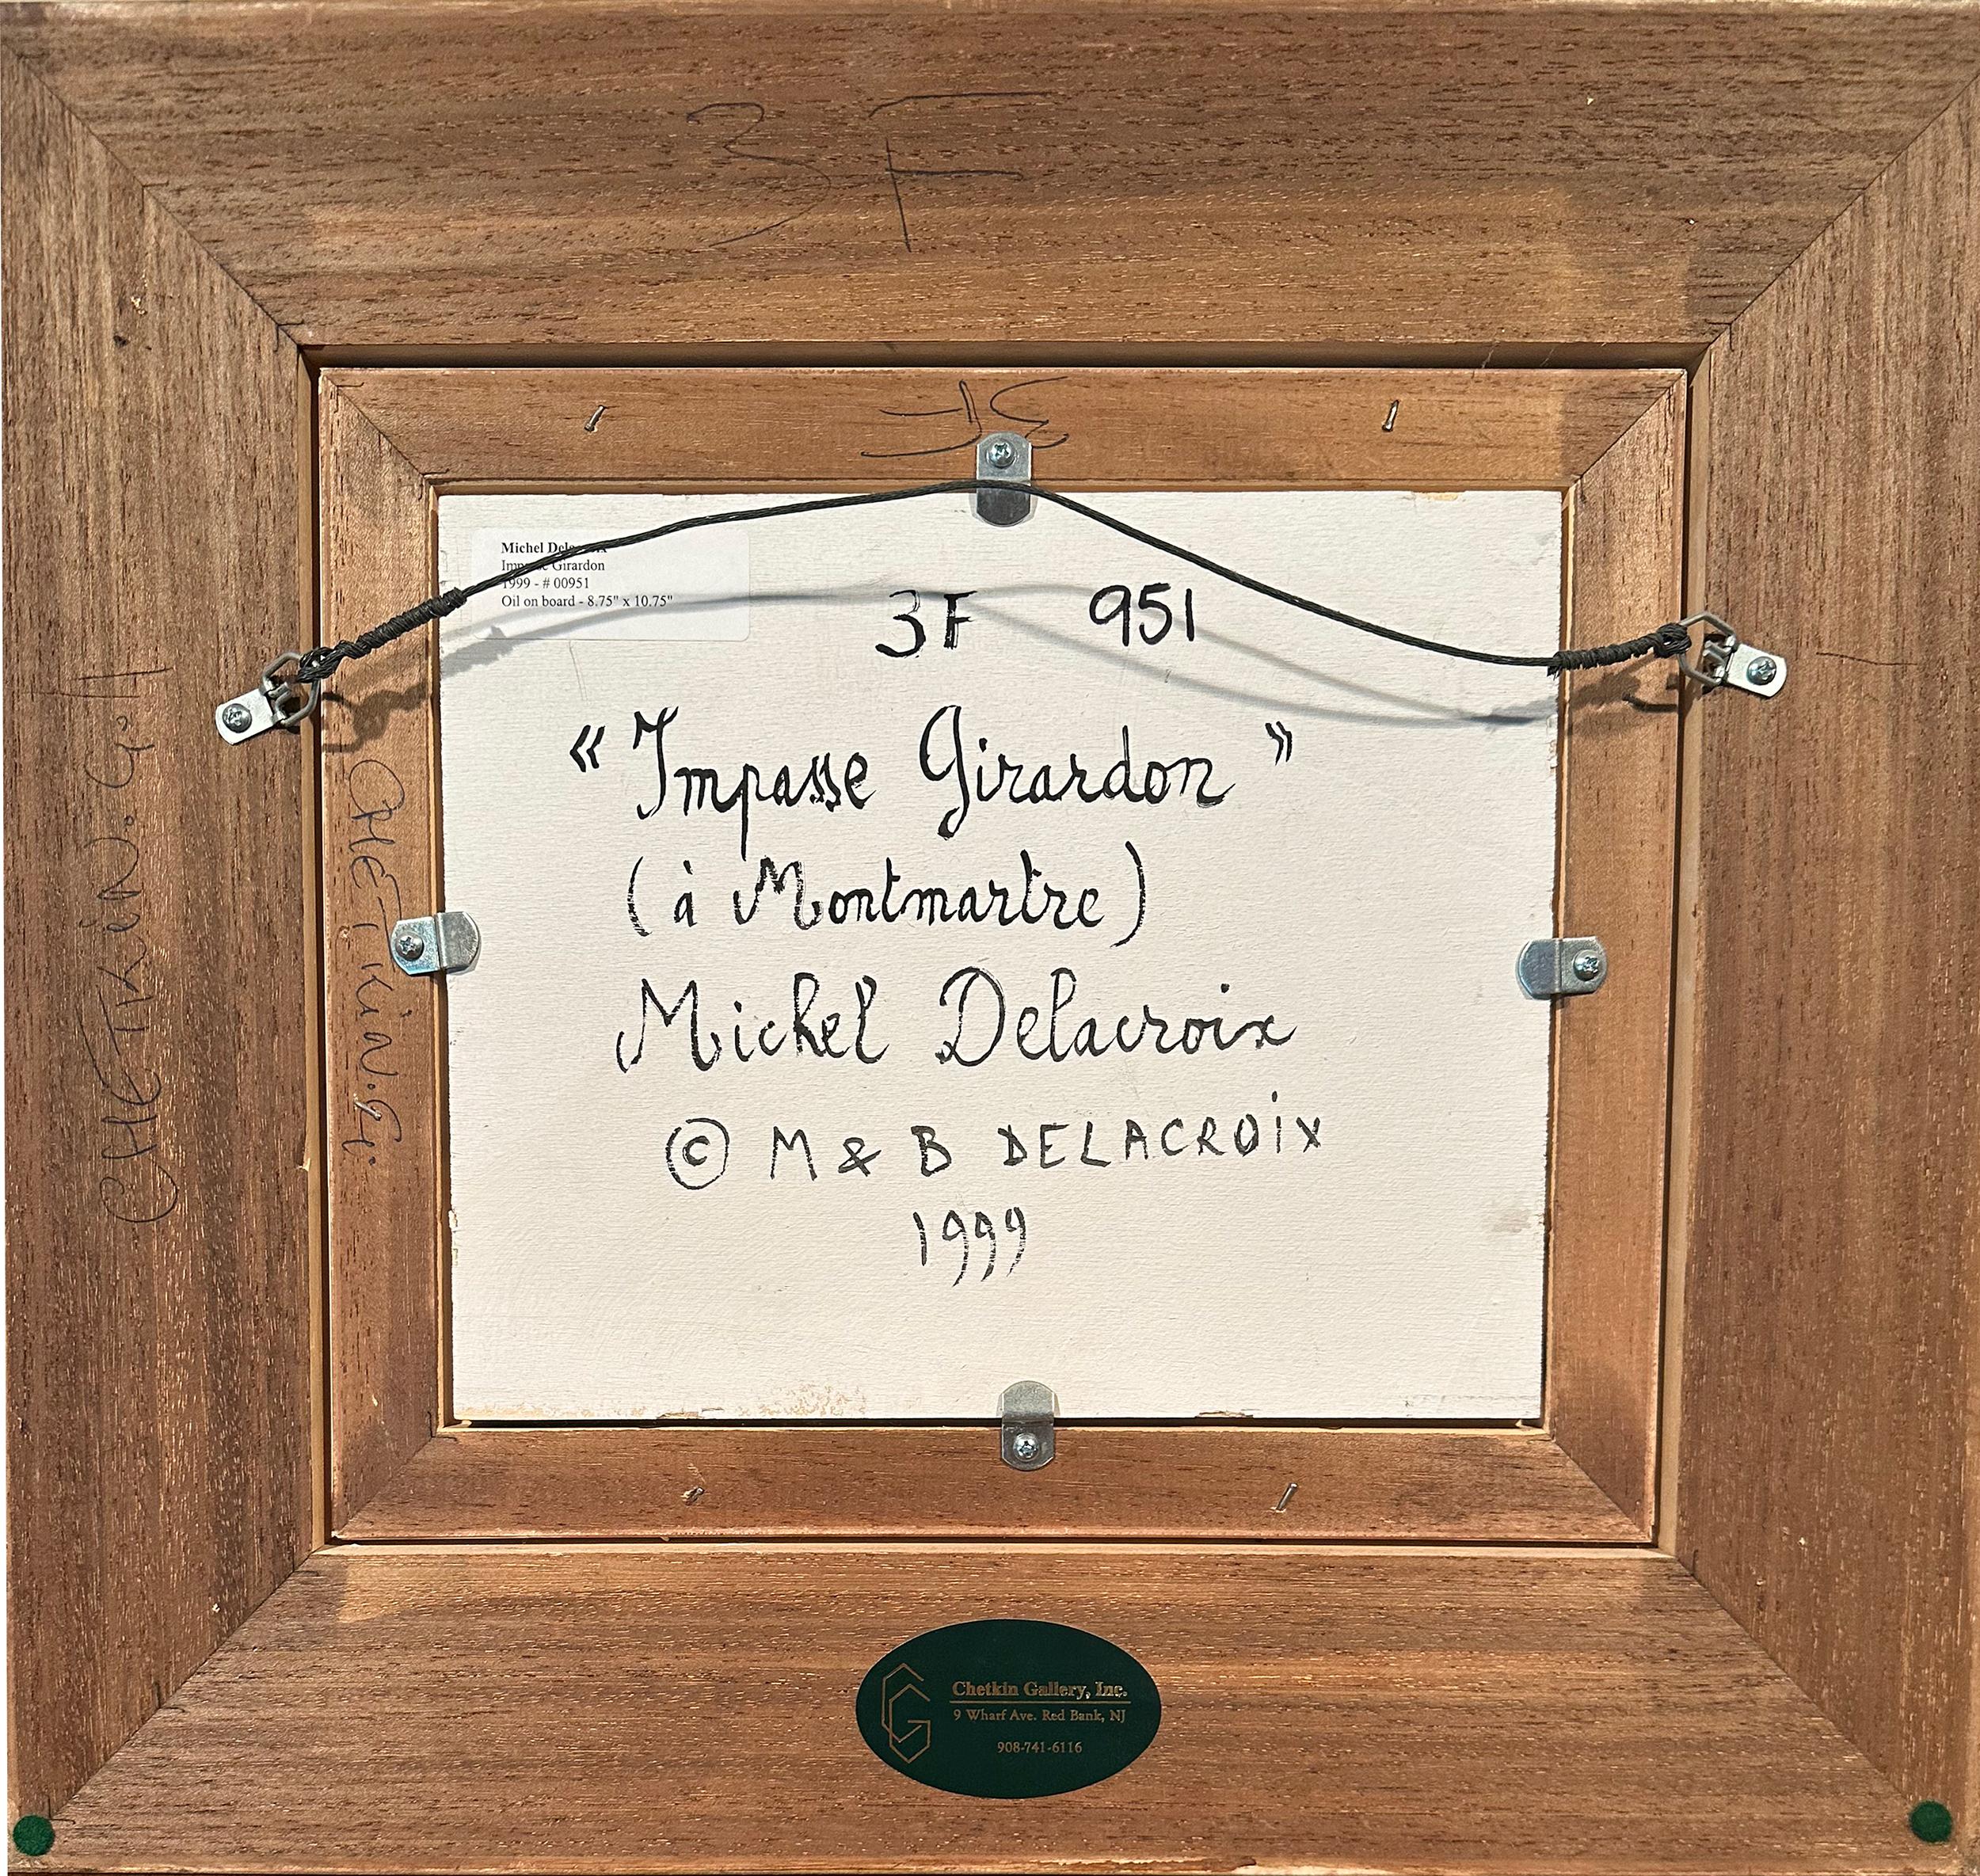 3F
3F
Michel Delacroix
Impasse Girardon
1999 - # 00951
Oil on board - 8.75" x 10.75"
3F 951
« Impasse Girardon »
(à Montmartre)
Michel Delacroix
© M & B DELACROIX
1999
CHETKIN. G.
CHETKIN. G.
Chetkin Gallery, Inc.
9 Wharf Ave. Red Bank, NJ
908-741-6116